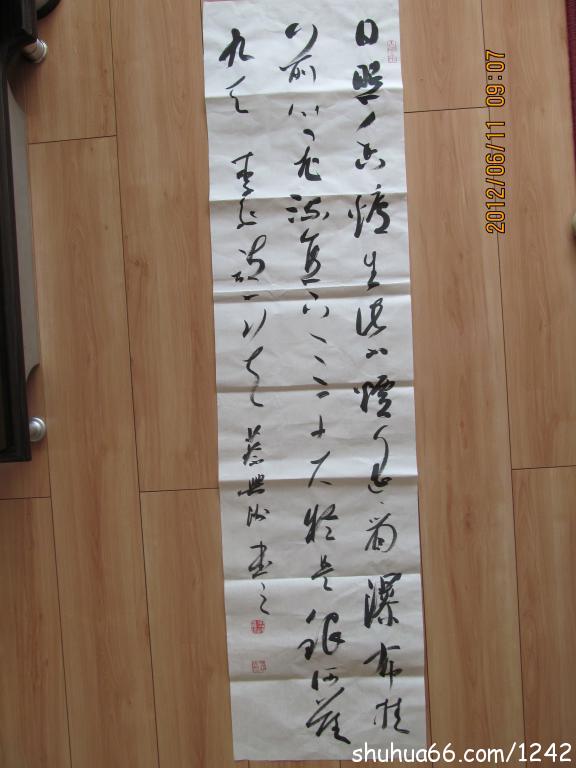 日照香爐生紫煙遥看瀑布挂
前川飛流直下三千尺疑是銀河落
九天 李白詩一首 書
2012/06/11 09:07
shuhua66.com/1242